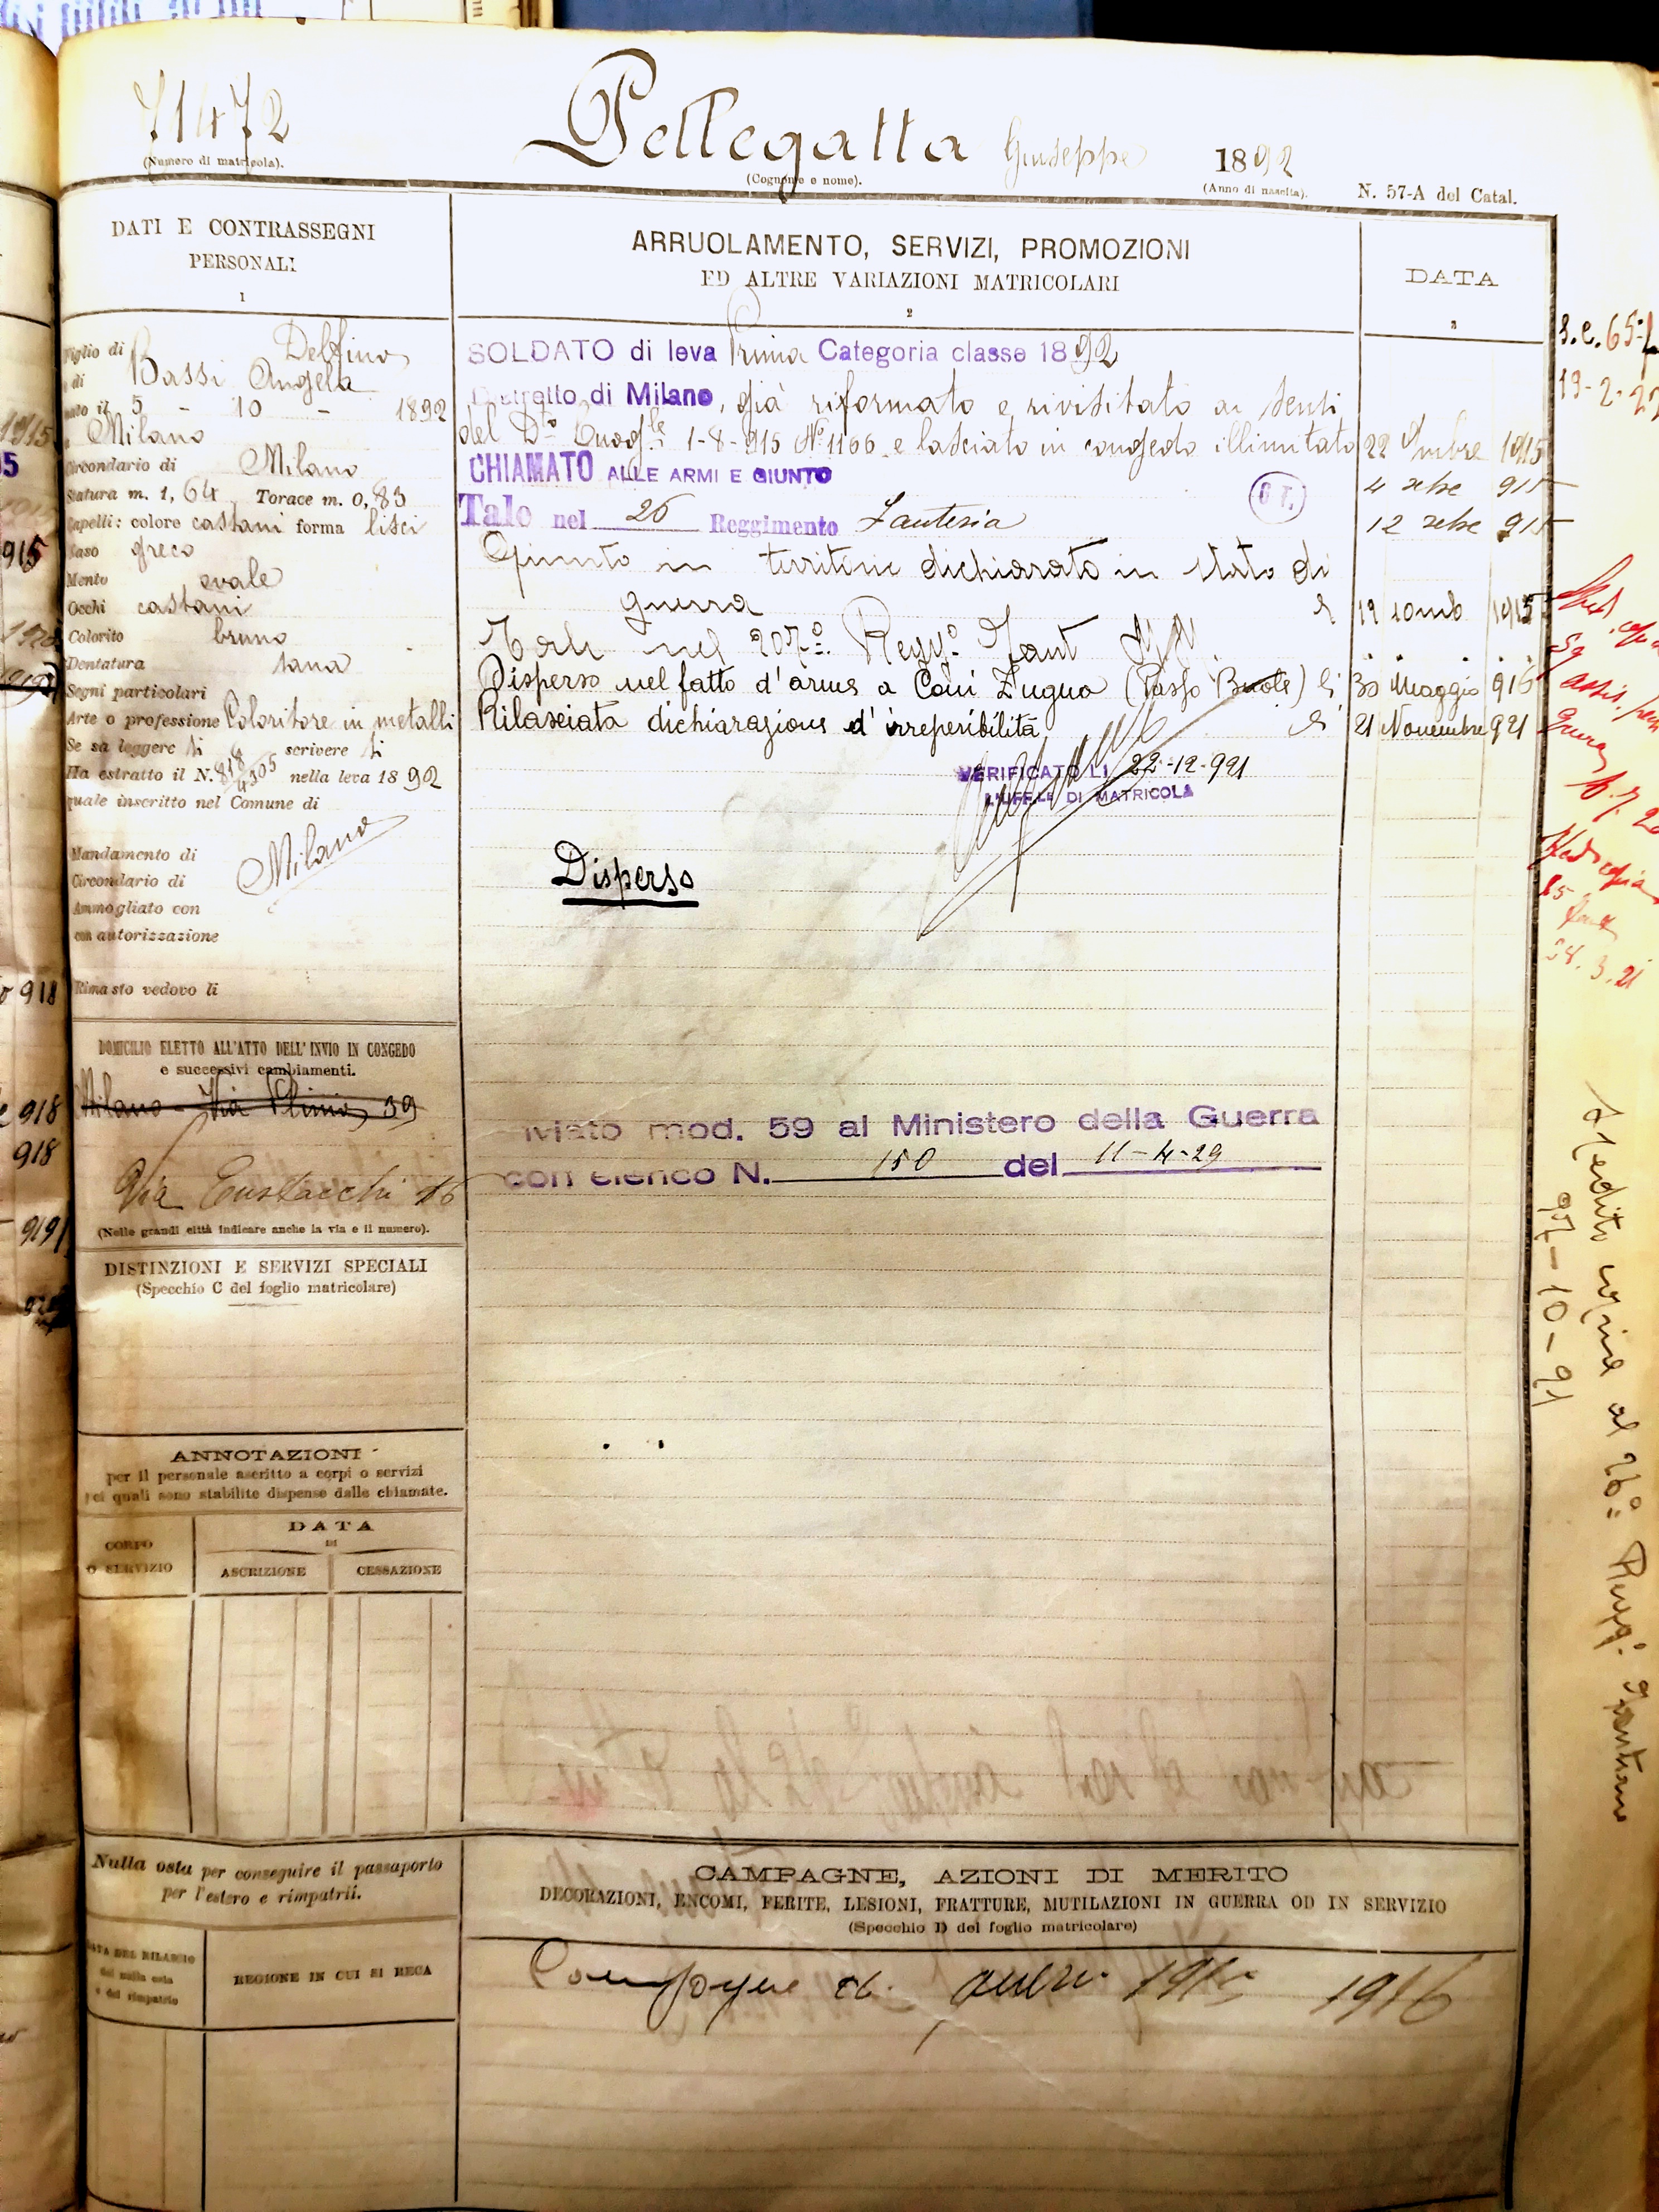 71472
(Numero di matricola).
Pellegatta Giuseppe
(Cognome e nome).
1892
(Anno di nascita).
N. 57-A del Catal.
DATI E CONTRASSEGNI
PERSONALI
1
Figlio di Delfino
e di Bassi Angela
nato il 5 - 10 - 1892
a Milano
Circondario di Milano
Statura m. 1, 64 Torace m. 0, 83
Capelli: colore castani forma lisci
Naso greco
Mento ovale
Occhi castani
Colorito bruno
Dentatura sana
Segni particolari
Arte o professione Coloritore in metalli
Se sa leggere si scrivere si
Ha estratto il N. nella leva 1892
quale inscritto nel Comune di
Milano
Mandamento di
Circondario di
Ammogliato con
con autorizzazione
Rimasto vedovo li
DOMICILIO ELETTO ALL'ATTO DELL'INVIO IN CONGEDO
e successivi cambiamenti.
Milano - Via Plinio 39
Via Eustacchi 16
(Nelle grandi città indicare anche la via e il numero).
DISTINZIONI E SERVIZI SPECIALI
(Specchio C del foglio matricolare)
ANNOTAZIONI
per il personale ascritto a corpi o servizi
pei quali sono stabilite dispense dalle chiamate.
CORPO
O SERVIZIO
DATA
DI
ASCRIZIONE
CESSAZIONE
Nulla osta per conseguire il passaporto
per l'estero e rimpatrii.
DATA DEL RILASCIO
del nulla osta
e del rimpatrio
REGIONE IN CUI SI RECA
ARRUOLAMENTO, SERVIZI, PROMOZIONI
ED ALTRE VARIAZIONI MATRICOLARI
2
DATA
3
SOLDATO di leva Prima Categoria classe 1892
Distretto di Milano, già riformato e rivisitato ai sensi
del 1-8-915 N° 1166 e lasciato in congedo illimitato 22 1915
CHIAMATO ALLE ARMI E GIUNTO 4 915
Tale nel 26 Reggimento Fanteria 12 915
Giunto in territorio dichiarato in stato di
guerra 1915
Tale nel 207° Regg° Fant
Disperso nel fatto d'arme a Coni Zugna (Passo Buole) li 30 Maggio 916
Rilasciata dichiarazione d'irreperibilità li 21 Novembre 921
VERIFICATO LI 22-12-921
L'UFF.LE DI MATRICOLA
Disperso
Inviato mod. 59 al Ministero della Guerra
con elenco N. 150 del 11-4-29
CAMPAGNE, AZIONI DI MERITO
DECORAZIONI, ENCOMI, FERITE, LESIONI, FRATTURE, MUTILAZIONI IN GUERRA OD IN SERVIZIO
(Specchio D del foglio matricolare)
Campagne di guerra 1915 1916
Spedito copia al 26° Regg. Fanteria